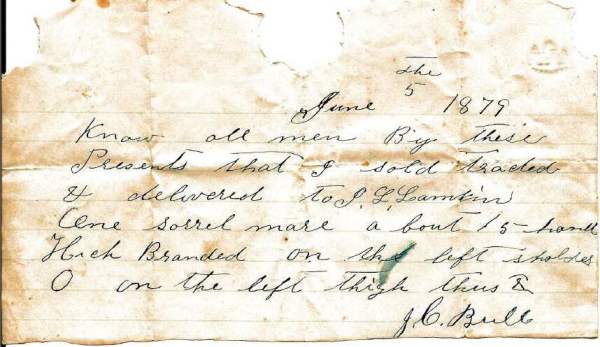 June the 5 1879
Know all men By these
Presents that I sold traded
& delivered to J. L. Lamkin
One sorrel mare a bout 15 hand
Hich Branded on the left sholder
O on the left thigh thus
J. C. Bull